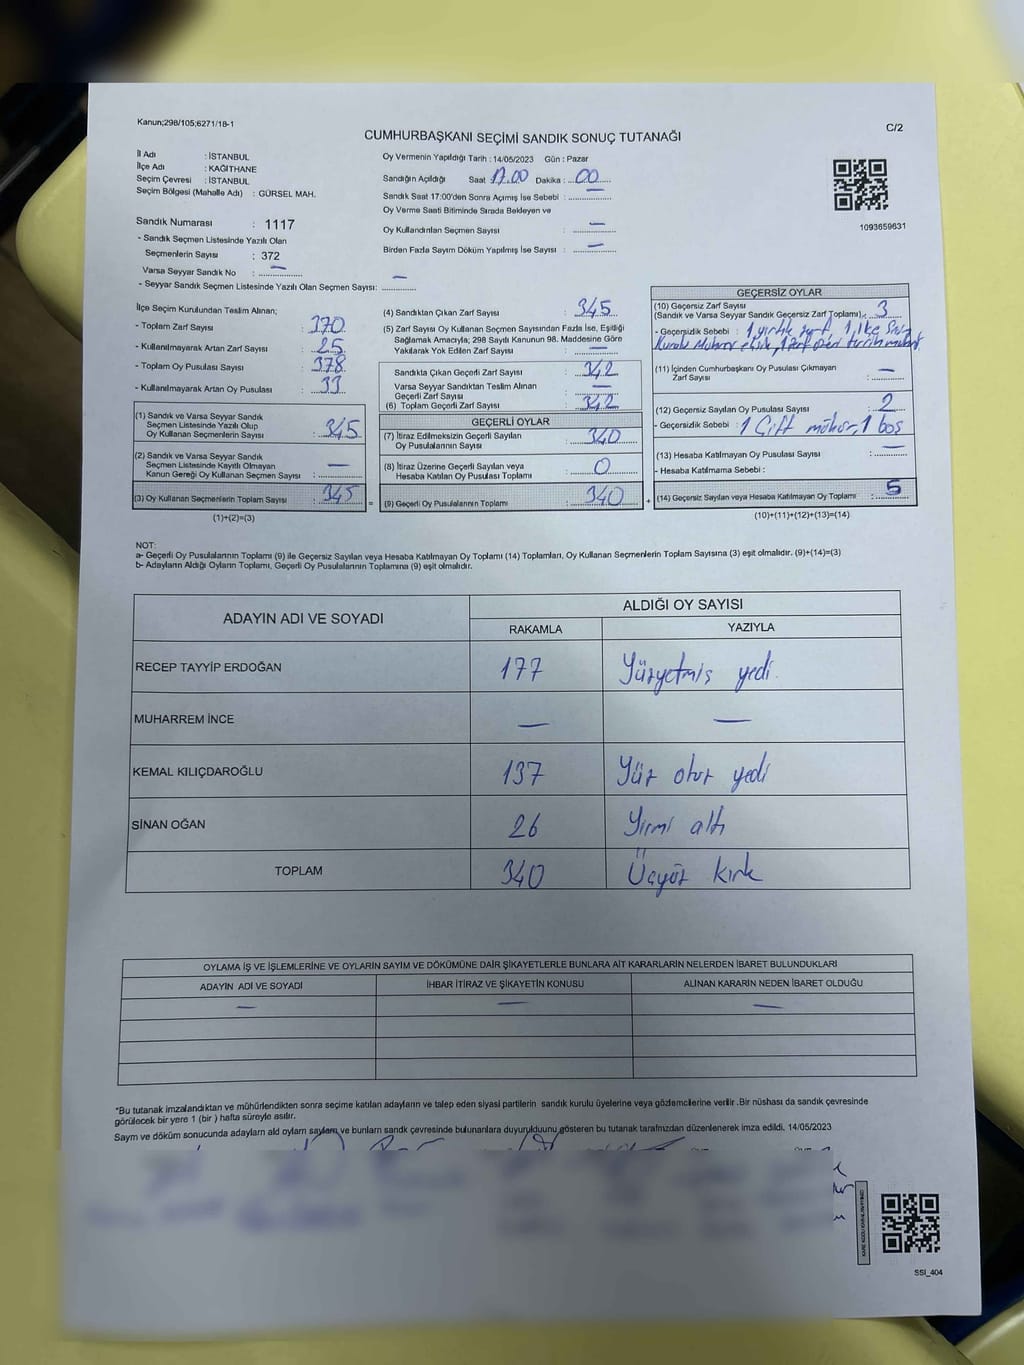 Kanun;298/105;6271/18-1
C/2
CUMHURBAŞKANI SEÇİMİ SANDIK SONUÇ TUTANAĞI
İl Adı : İSTANBUL
İlçe Adı : KAĞITHANE
Seçim Çevresi : İSTANBUL
Seçim Bölgesi (Mahalle Adı) : GÜRSEL MAH.
Sandık Numarası : 1117
- Sandık Seçmen Listesinde Yazılı Olan
Seçmenlerin Sayısı : 372
Varsa Seyyar Sandık No : —
- Seyyar Sandık Seçmen Listesinde Yazılı Olan Seçmen Sayısı: —
Oy Vermenin Yapıldığı Tarih : 14/05/2023 Gün : Pazar
Sandığın Açıldığı Saat 17.00 Dakika : 00
Sandık Saat 17:00'den Sonra Açımış İse Sebebi : —
Oy Verme Saati Bitiminde Sırada Bekleyen ve
Oy Kullandırılan Seçmen Sayısı : —
Birden Fazla Sayım Döküm Yapılmış İse Sayısı : —
1093659631
İlçe Seçim Kurulundan Teslim Alınan;
- Toplam Zarf Sayısı : 370
- Kullanılmayarak Artan Zarf Sayısı : 25
- Toplam Oy Pusulası Sayısı : 378
- Kullanılmayarak Artan Oy Pusulası : 33
(1) Sandık ve Varsa Seyyar Sandık
Seçmen Listesinde Yazılı Olup
Oy Kullanan Seçmenlerin Sayısı : 345
(2) Sandık ve Varsa Seyyar Sandık
Seçmen Listesinde Kayıtlı Olmayan
Kanun Gereği Oy Kullanan Seçmen Sayısı : —
(3) Oy Kullanan Seçmenlerin Toplam Sayısı : 345
(1)+(2)=(3)
(4) Sandıktan Çıkan Zarf Sayısı : 345
(5) Zarf Sayısı Oy Kullanan Seçmen Sayısından Fazla İse, Eşitliği
Sağlamak Amacıyla; 298 Sayılı Kanunun 98. Maddesine Göre
Yakılarak Yok Edilen Zarf Sayısı : —
Sandıkta Çıkan Geçerli Zarf Sayısı : 342
Varsa Seyyar Sandıktan Teslim Alınan
Geçerli Zarf Sayısı : —
(6) Toplam Geçerli Zarf Sayısı : 342
GEÇERLİ OYLAR
(7) İtiraz Edilmeksizin Geçerli Sayılan
Oy Pusulasının Sayısı : 340
(8) İtiraz Üzerine Geçerli Sayılan veya
Hesaba Katılan Oy Pusulası Toplamı : 0
(9) Geçerli Oy Pusulalarının Toplamı : 340
GEÇERSİZ OYLAR
(10) Geçersiz Zarf Sayısı
(Sandık ve Varsa Seyyar Sandık Geçersiz Zarf Toplamı) : 3
- Geçersizlik Sebebi : 1 yırtık zarf, 1 ilçe Seç
Kurulu Mührü eksik, 1 zarf üzeri
(11) İçinden Cumhurbaşkanı Oy Pusulası Çıkmayan
Zarf Sayısı : —
(12) Geçersiz Sayılan Oy Pusulası Sayısı : 2
- Geçersizlik Sebebi : 1 Çift mühür, 1 boş
(13) Hesaba Katılmayan Oy Pusulası Sayısı : —
- Hesaba Katılmama Sebebi :
(14) Geçersiz Sayılan veya Hesaba Katılmayan Oy Toplamı : 5
(10)+(11)+(12)+(13)=(14)
NOT:
a- Geçerli Oy Pusulalarının Toplamı (9) ile Geçersiz Sayılan veya Hesaba Katılmayan Oy Toplamı (14) Toplamları, Oy Kullanan Seçmenlerin Toplam Sayısına (3) eşit olmalıdır. (9)+(14)=(3)
b- Adayların Aldığı Oyların Toplamı, Geçerli Oy Pusulalarının Toplamına (9) eşit olmalıdır.
ADAYIN ADI VE SOYADI ALDIĞI OY SAYISI
RAKAMLA YAZIYLA
RECEP TAYYİP ERDOĞAN 177 Yüzyetmiş yedi
MUHARREM İNCE — —
KEMAL KILIÇDAROĞLU 137 Yüz otuz yedi
SİNAN OĞAN 26 Yirmi altı
TOPLAM 340 Üçyüz kırk
OYLAMA İŞ VE İŞLEMLERİNE VE OYLARIN SAYIM VE DÖKÜMÜNE DAİR ŞİKAYETLERLE BUNLARA AİT KARARLARIN NELERDEN İBARET BULUNDUKLARI
ADAYIN ADI VE SOYADI İHBAR İTİRAZ VE ŞİKAYETİN KONUSU ALINAN KARARIN NEDEN İBARET OLDUĞU
— — —
*Bu tutanak imzalandıktan ve mühürlendikten sonra seçime katılan adayların ve talep eden siyasi partilerin sandık kurulu üyelerine veya gözlemcilerine verilir .Bir nüshası da sandık çevresinde
görülecek bir yere 1 (bir ) hafta süreyle asılır.
Sayım ve döküm sonucunda adayların ald oyların sayıların ve bunların sandık çevresinde bulunanlara duyurulduunu gösteren bu tutanak tarafımızdan düzenlenerek imza edildi. 14/05/2023
SSI_404